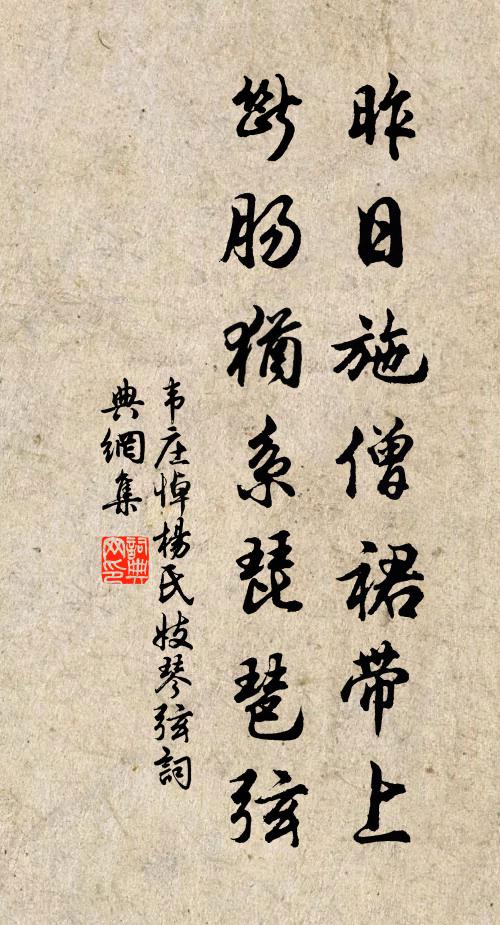 昨日施僧裙带上
断肠犹系琵琶弦
韦庄悼杨氏妓琴弦词
典網集
詞典
网印